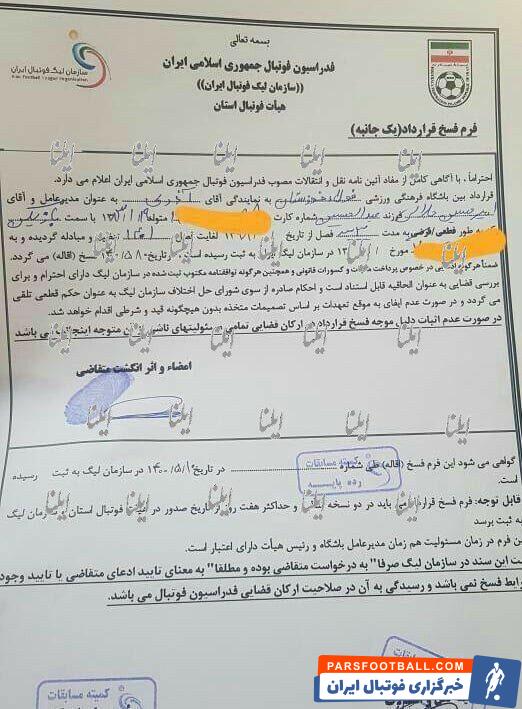 بسمه تعالی
فدراسیون فوتبال جمهوری اسلامی ایران
((سازمان لیگ فوتبال ایران))
هیأت فوتبال استان
سازمان لیگ فوتبال ایران
Iran Football League Organization
فرم فسخ قرارداد(یک جانبه)
احتراماً . با آگاهی کامل از مفاد آئین نامه نقل و انتقالات مصوب فدراسیون فوتبال جمهوری اسلامی ایران اعلام می دارد.
قرارداد بین باشگاه فرهنگی ورزشی فولاد خوزستان به نمایندگی آقای به عنوان مدیرعامل و آقای
فرزند عبدالحسین شماره کارت متولد با سمت
به طور قطعی/قرضی به مدت فصل از تاریخ لغایت و مبادله گردیده و به
مورخ در سازمان لیگ به ثبت رسیده است از تاریخ ۱۴۰۰/۵/۱۰ فسخ (اقاله) می گردد.
ضمناً هرگونه در خصوص پرداخت مالیات و کسورات قانونی و همچنین هرگونه توافقنامه مکتوب ثبت شده در سازمان لیگ دارای احترام و برای
بررسی قضایی به عنوان الحاقیه قابل استناد است و احکام صادره از سوی شورای حل اختلاف سازمان لیگ به عنوان حکم قطعی تلقی
می گردد و در صورت عدم ایفای به موقع تعهدات بر اساس تصمیمات متخذه بدون هیچگونه قید و شرطی اقدام خواهد شد.
در صورت عدم اثبات دلیل موجه فسخ قرارداد در ارکان قضایی تمامی مسئولیتهای ناشی از آن متوجه اینجانب می باشد
امضاء و اثر انگشت متقاضی
گواهی می شود این فرم فسخ (اقاله) طی شماره در تاریخ ۱۴۰۰/۵/۱۰ در سازمان لیگ به ثبت رسیده
است.
کمیته مسابقات
رده پایه
قابل توجه: فرم فسخ قرارداد می باید در دو نسخه و حداکثر هفت روز از تاریخ صدور در هیأت فوتبال استان و سازمان لیگ
به ثبت برسد
این فرم در زمان مسئولیت هم زمان مدیرعامل باشگاه و رئیس هیأت دارای اعتبار است.
ثبت این سند در سازمان لیگ صرفا" به درخواست متقاضی بوده و مطلقا" به معنای تایید ادعای متقاضی یا تایید وجود
شرایط فسخ نمی باشد و رسیدگی به آن در صلاحیت ارکان قضایی فدراسیون فوتبال می باشد.
کمیته مسابقات
کمیته مسابقات
ایلنا
PARSFOOTBALL.COM
خبرگزاری فوتبال ایران